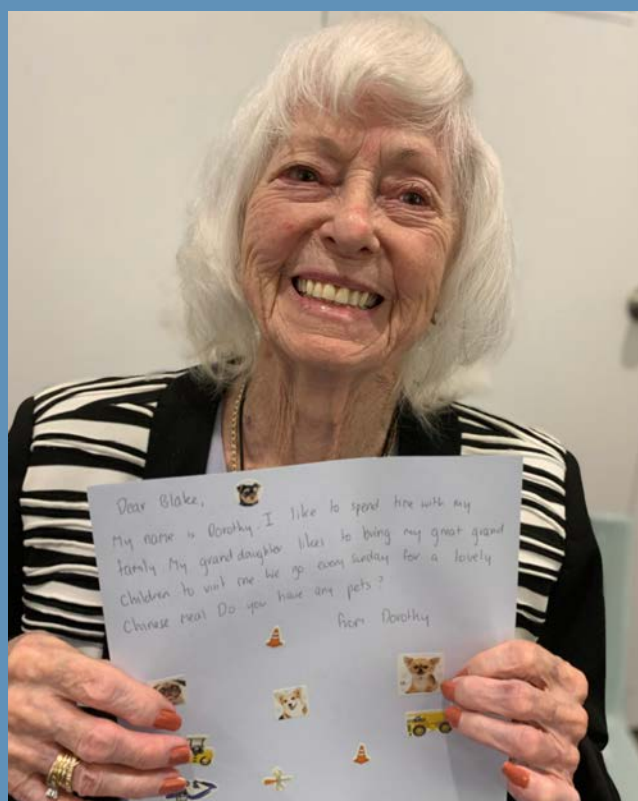 Dear Blake,
My name is Dorothy. I like to spend time with my
family. My grand daughter likes to bring my great grand
children to visit me. We go every Sunday for a lovely
Chinese meal. Do you have any pets?
from Dorothy